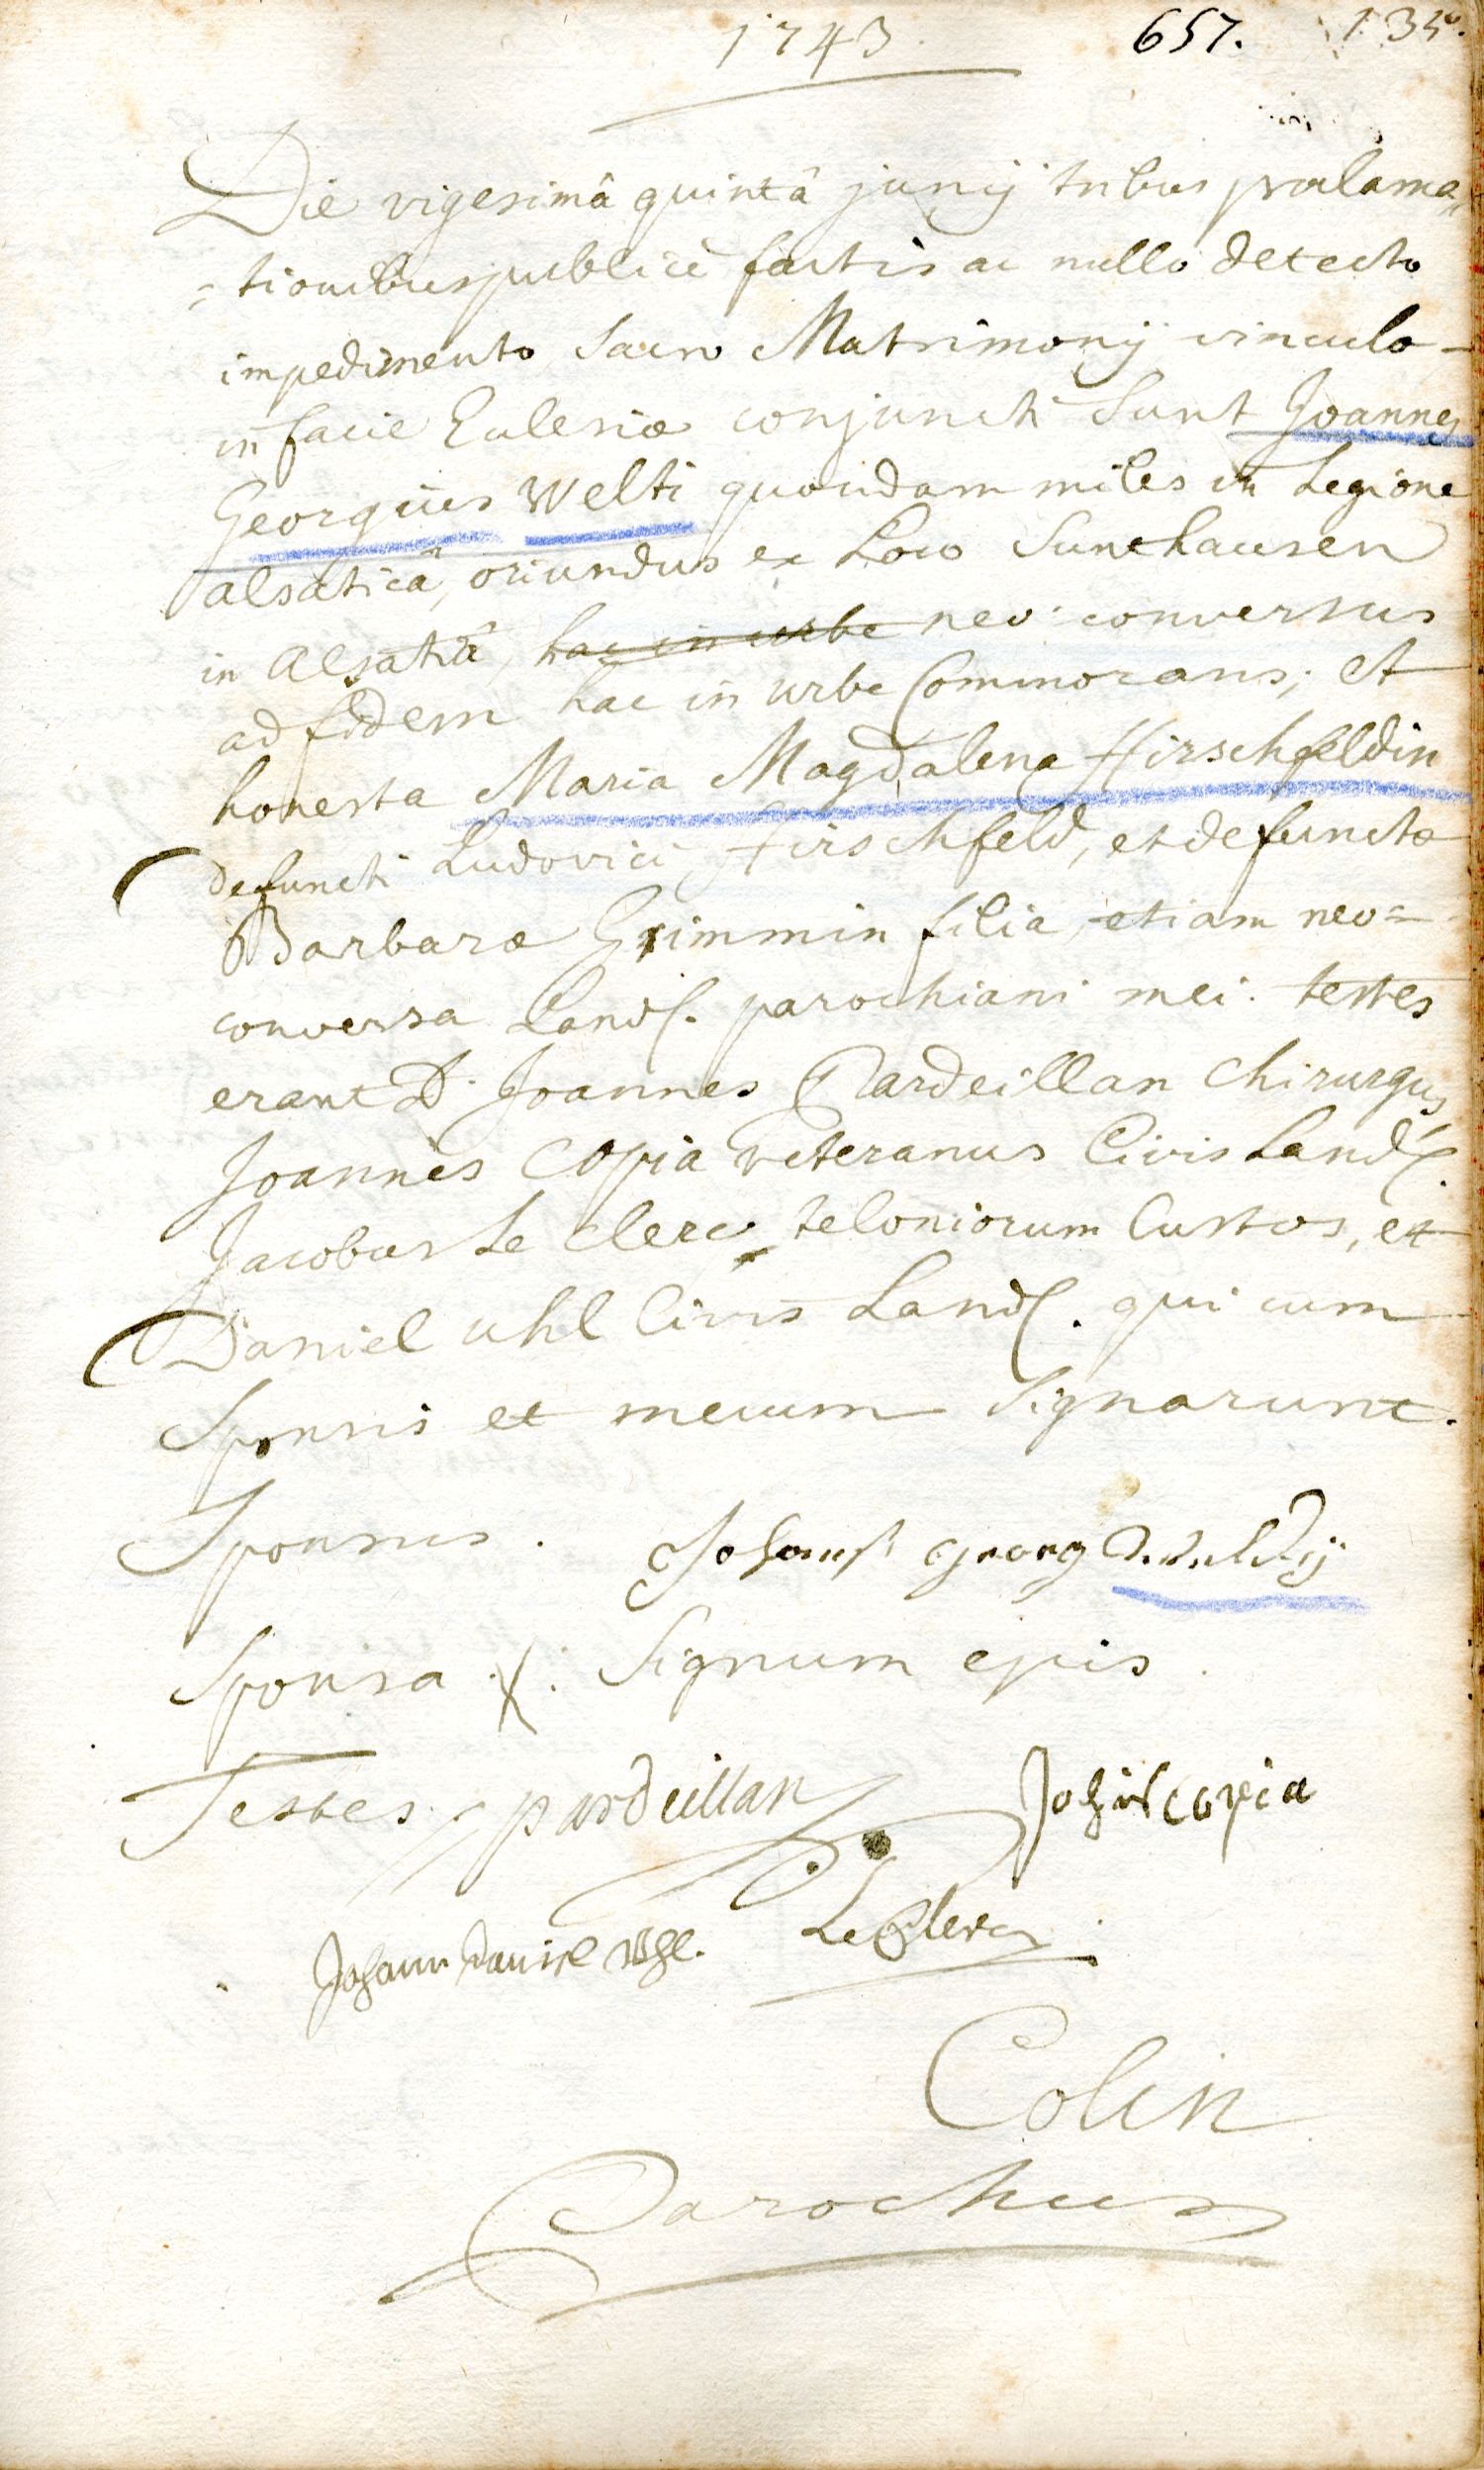 1743. 657. 135.
Die vigesimâ quintâ junij tribus proclama„
„tionibus publicè factis ac nullo detecto
impedimento Sacro Matrimonij vinculo
in facie Ecclesiæ conjuncti Sunt Joannes
Georgius Welti quondam miles in Legione
alsaticâ, oriundus ex Loco Sunthausen
in Alsatiâ, hac in urbe neo-conversus
ad fidem hac in urbe Commorans; et
honesta Maria Magdalena Hirschfeldin
defuncti Ludovici Hirschfeld, et defunctæ
Barbaræ Grimmin filia, etiam neo=
conversa Land. parochiani mei. testes
erant D. Joannes Pardeillan Chirurgus
Joannes Copia veteranus Civis Land.
Jacobus Le Clerc teloniorum Custos, et
Daniel Uhl Civis Land. qui cum
Sponsis et mecum Signarunt.
Sponsus. Johanes Georg
Sponsa X Signum ejus
Testes pardeillan Johañs copia
Johann Daniel Uhl. LeClerc
Colin
Parochus